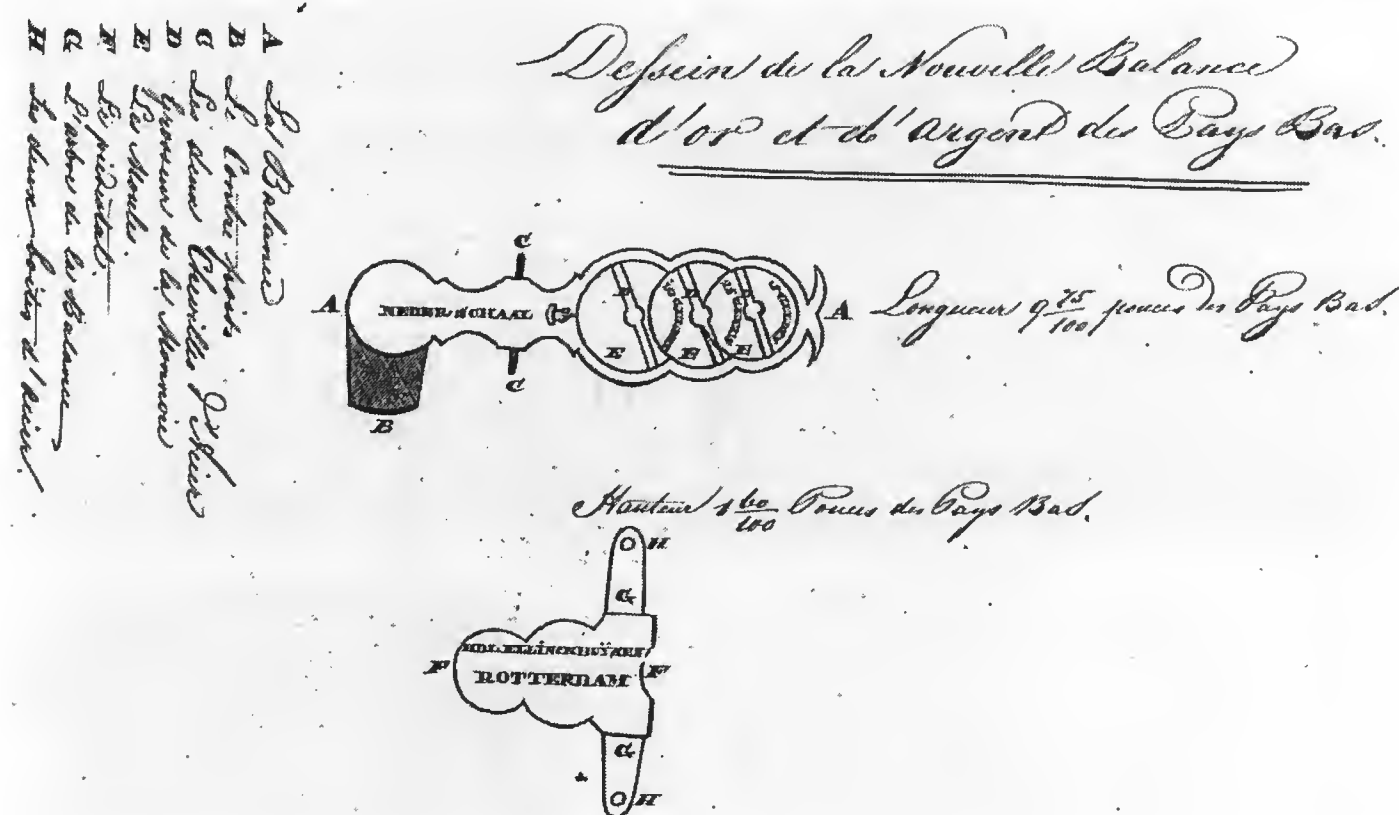 Dessein de la Nouvelle Balance
d'or et d'argent des Pays Bas.
A La Balance
B Le Contre poids
C Les deux Chevilles d'Acier
D Grosseur de la Monnoie
E Les Moules.
F Le piédestal.
G L'arbre de la Balance
H Les deux boîtes d'Acier.
C
A NEDER SCHAAL A
D D
E E E
C
B
Longueur 9 75/100 pouces des Pays Bas.
Hauteur 1 60/100 Pouces des Pays Bas.
H
G
F ROTTERDAM F
G
H